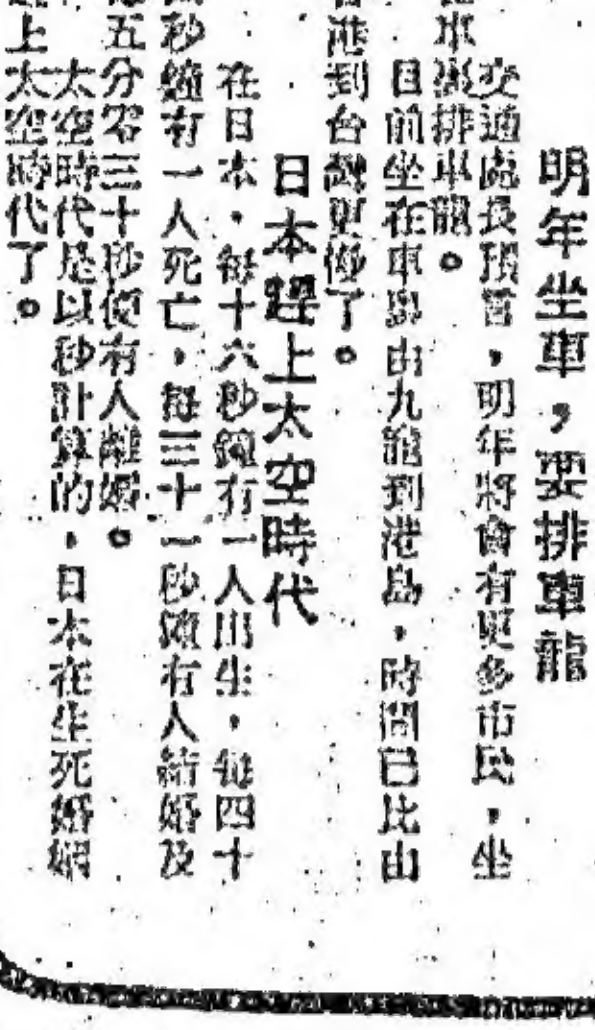 明年坐車,要排車龍
交通處長預言,明年將會有更多市民,坐
車排車龍。
目前坐在車由九龍到港島,時間已比由
港到台更慢了。
日本趕上太空時代
在日本,每十六秒鐘有一人出生,每四十
秒鐘有一人死亡,每三十一秒鐘有人結婚及
五分零三十秒便有人離婚。
太空時代是以秒計算的,日本在生死婚姻
上太空時代了。